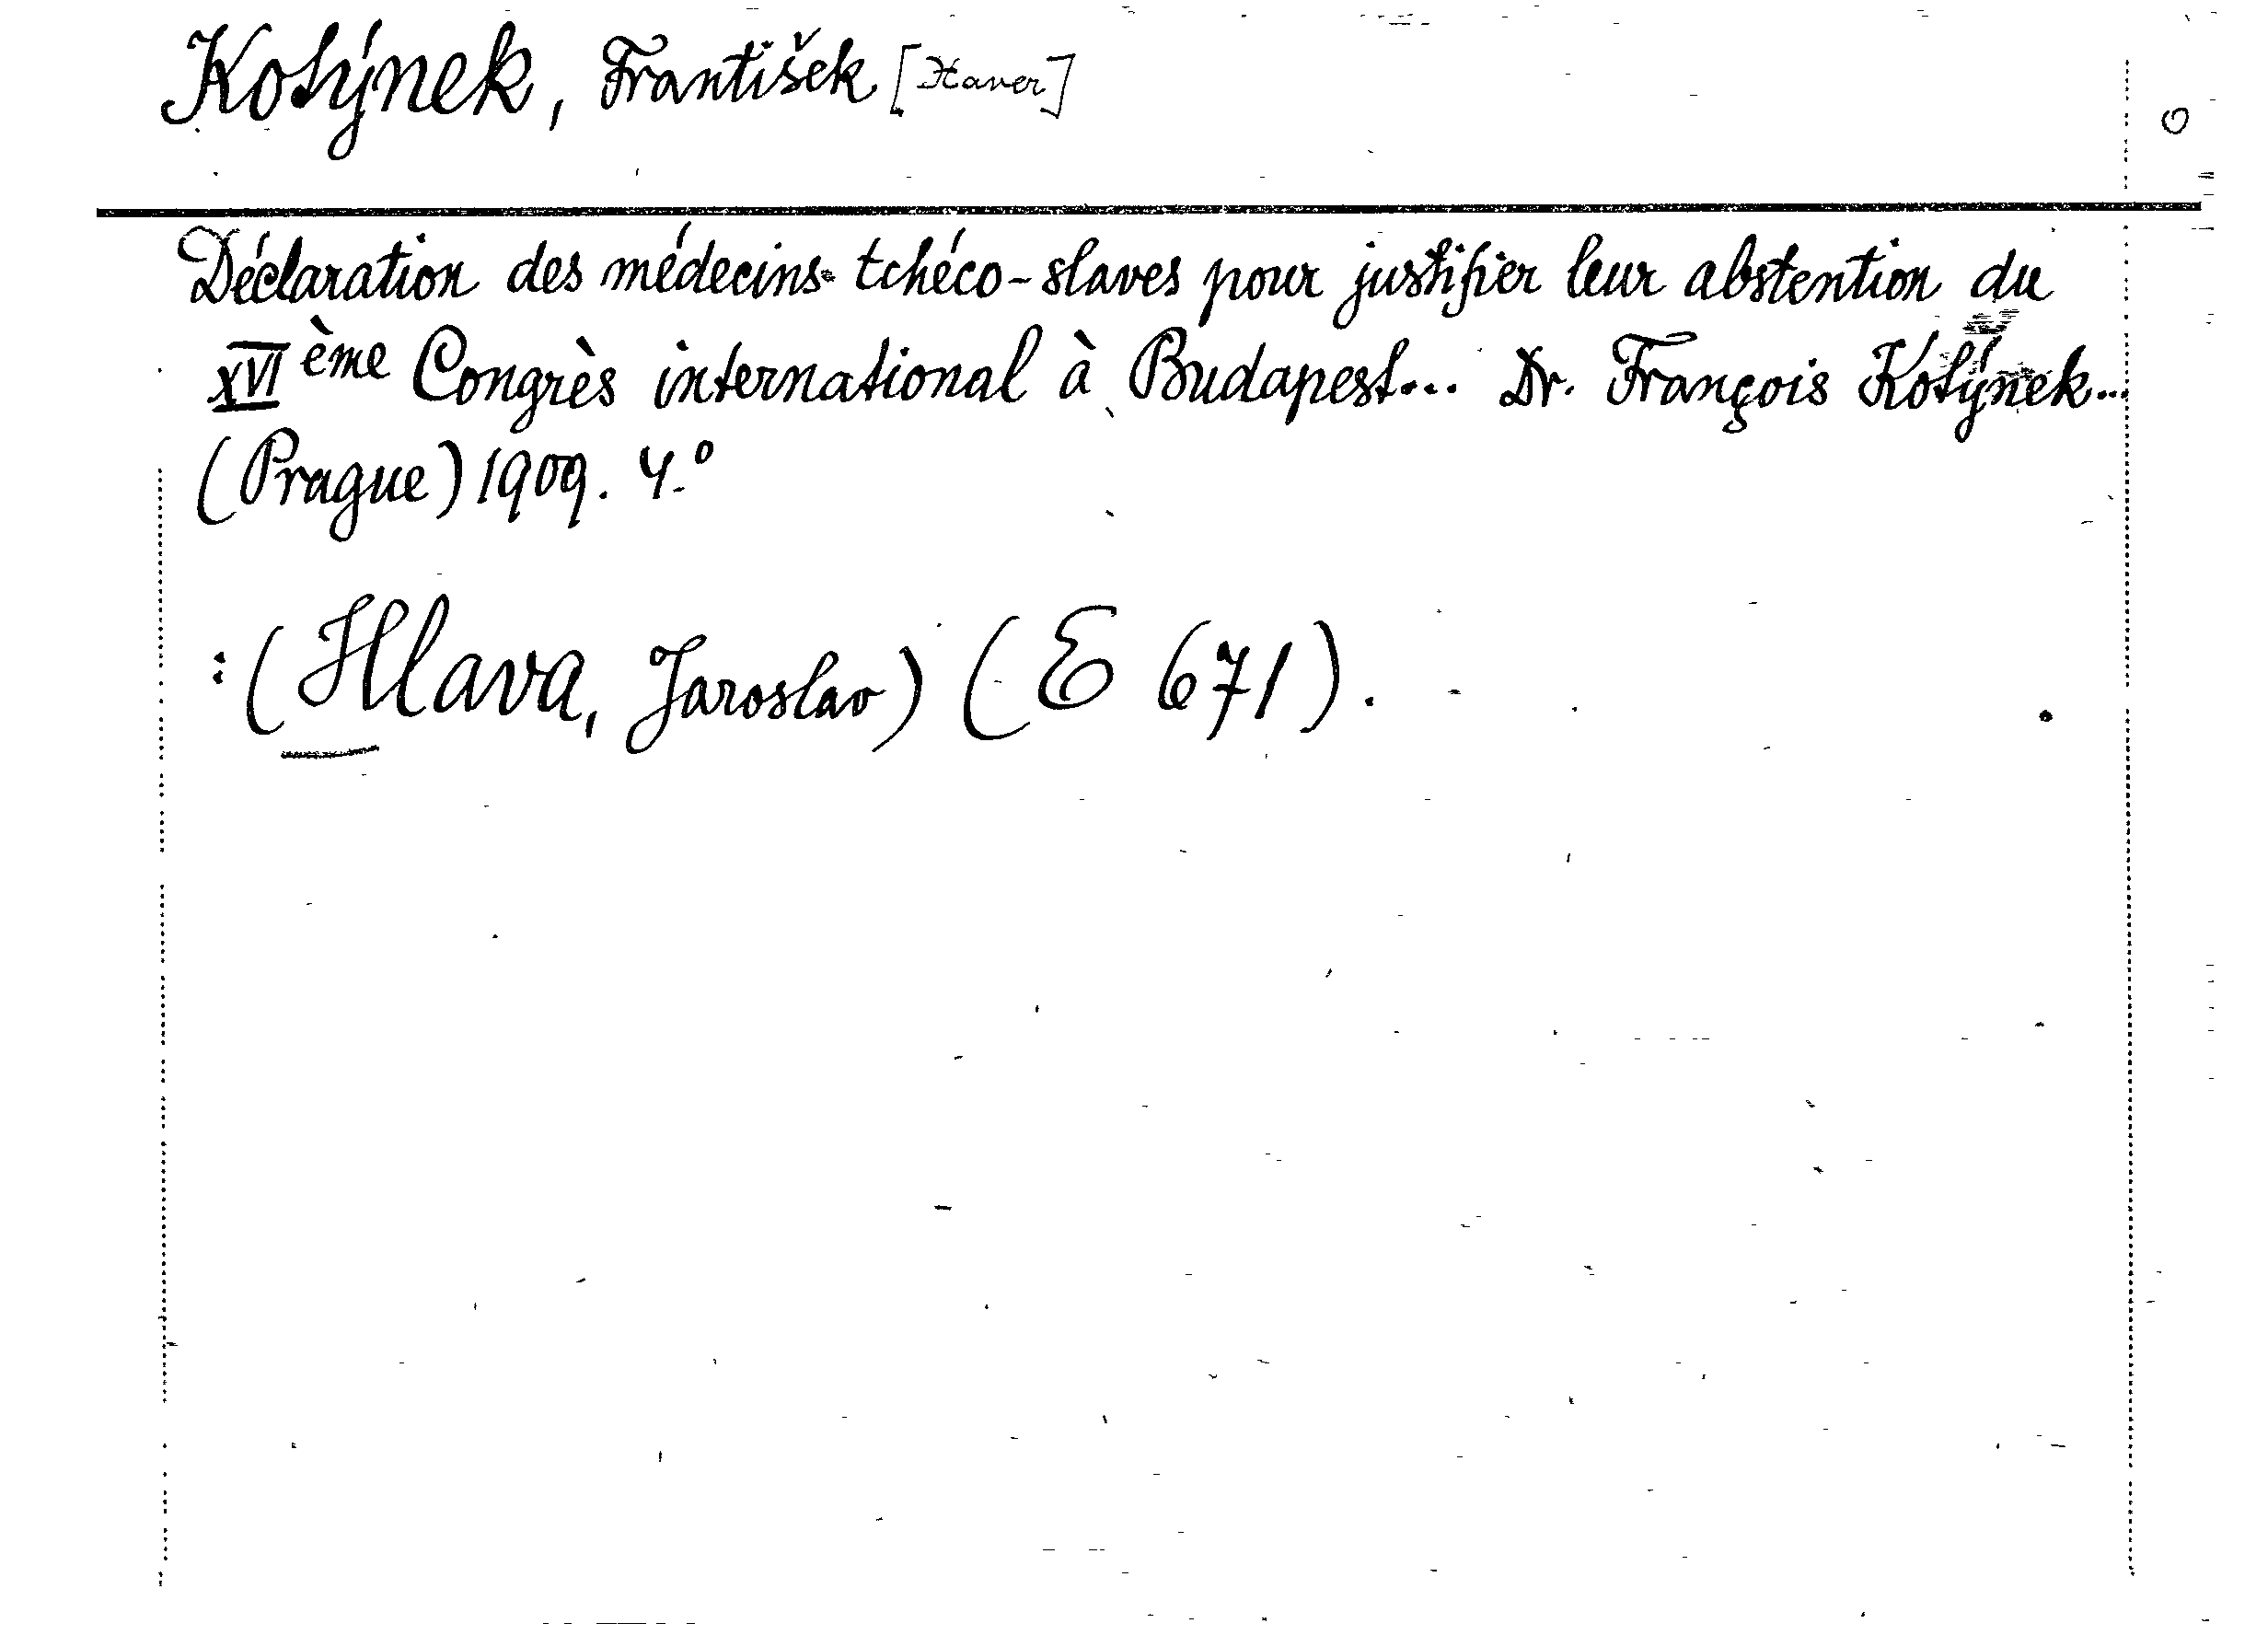 Kotýnek, František [Xaver]
Déclaration des médecins tchéco-slaves pour justifier leur abstention du
XVI ème Congrès international à Budapest... Dr. François Kotýnek...
(Prague) 1909. 4.°
:(Hlava, Jaroslav) (E 671).